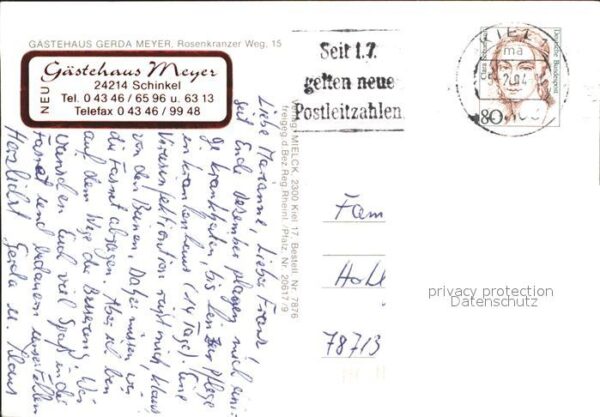 GÄSTEHAUS GERDA MEYER, Rosenkranzer Weg, 15
NEU
Gästehaus Meyer
24214 Schinkel
Tel. 0 43 46 / 65 96 u. 63 13
Telefax 0 43 46 / 99 48
Seit 1.7.
gelten neue
Postleitzahlen
KIEL
ma
Clara Schumann
Deutsche Bundespost
80
MIELCK, 2300 Kiel 17 Bestell. Nr. 7876
freigeg. d. Bez. Reg. Rheinl./Pfalz, Nr. 20617/9
Liebe Marianne, Lieber Franz!
seit Ende Dezember plagen mich
Krankheiten, bis hin zur Pflege
im Krankenhaus (14 Tage). Eine
Virusinfektion reißt mich
von den Beinen. Daher müssen wir
die Fasnet absagen. Aber ich bin
auf dem Wege der Besserung. Wir
wünschen Euch viel Spaß in der
Fasnet und bedauern
Herzlichst Gerda u. Klaus
Fam
Hohl
78713
privacy protection
Datenschutz